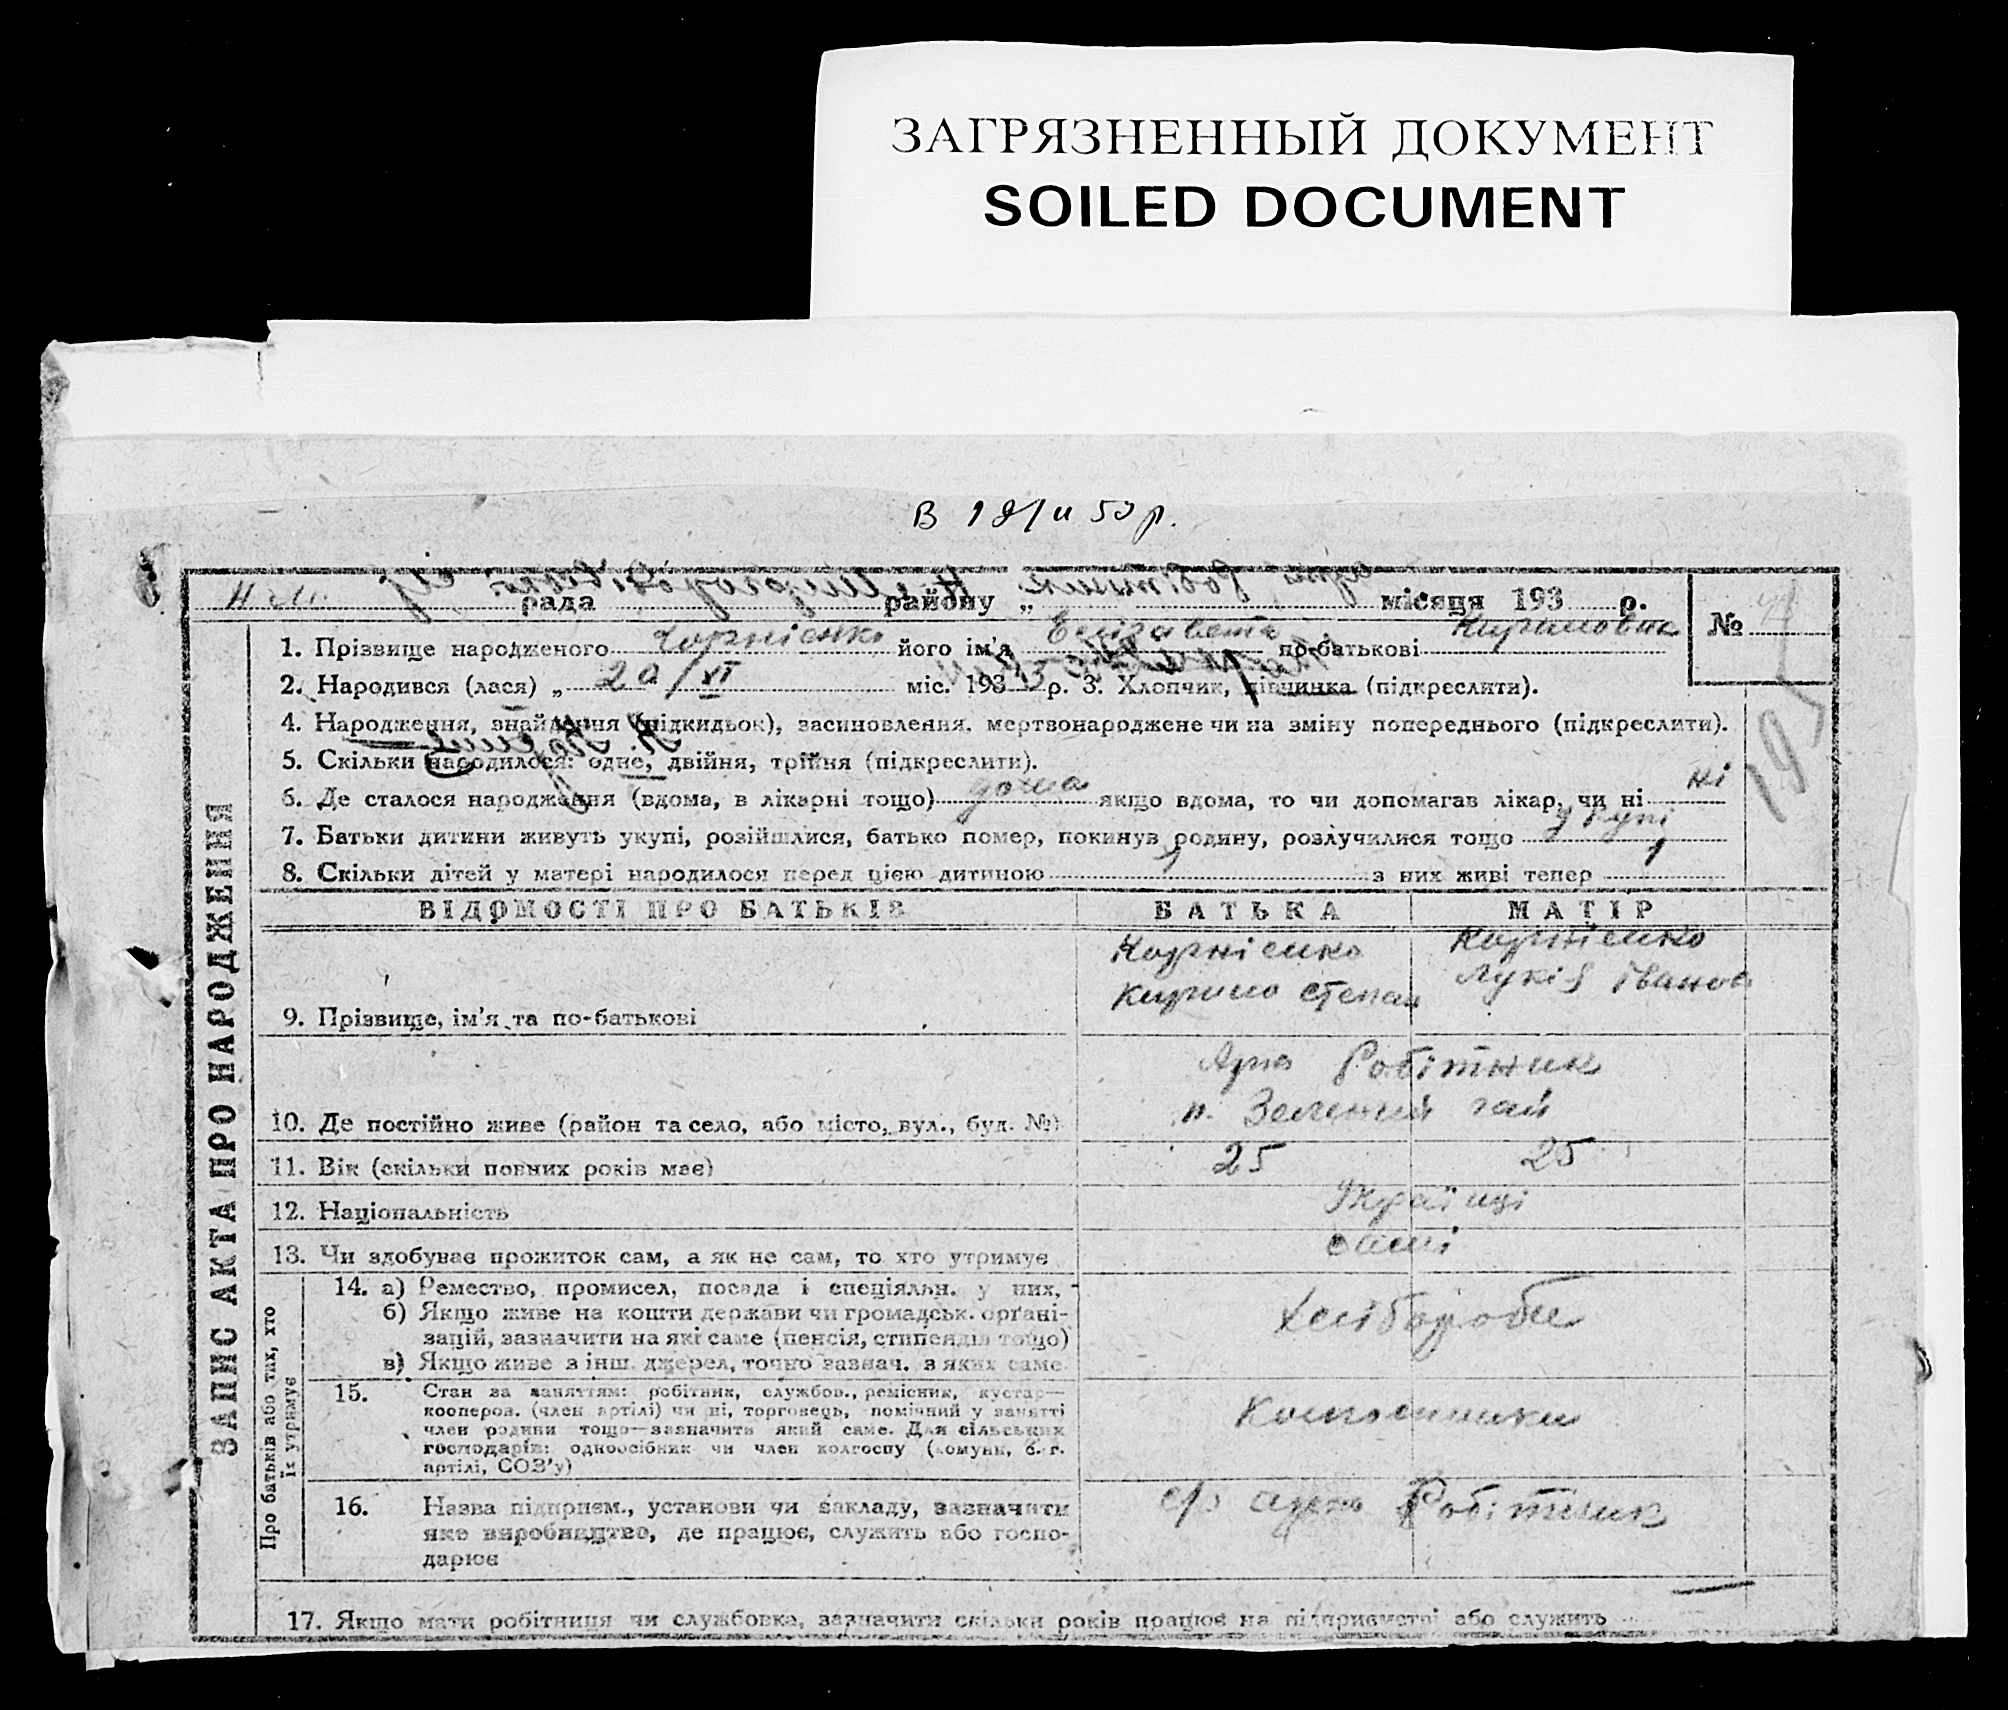 ЗАГРЯЗНЕННЫЙ ДОКУМЕНТ
SOILED DOCUMENT
рада району „ місяця 193 р. №
1. Прізвище народженого Корнієнко його ім'я Єлізавета по-батькові Кириловна
2. Народився (лася) „ 20/XI міс. 193 р. 3. Хлопчик, дівчинка (підкреслити).
4. Народження, знайдення (підкидьок), засиновлення, мертвонароджене чи на зміну попереднього (підкреслити).
5. Скільки народилося: одне, двійня, трійня (підкреслити).
6. Де сталося народження (вдома, в лікарні тощо) дома якщо вдома, то чи допомагав лікар, чи ні ні
7. Батьки дитини живуть укупі, розійшлися, батько помер, покинув родину, розлучилися тощо укупі
8. Скільки дітей у матері народилося перед цією дитиною 1 з них живі тепер 1
ЗАПИС АКТА ПРО НАРОДЖЕННЯ
ВІДОМОСТІ ПРО БАТЬКІВ БАТЬКА МАТІР
Корнієнко Корнієнко
Кирило Степан Лукія Іванов
9. Прізвище, ім'я та по-батькові
Робітник
10. Де постійно живе (район та село, або місто, вул., буд. №) п. Зелений гай
11. Вік (скільки повних років має) 25 25
12. Національність Українці
13. Чи здобуває прожиток сам, а як не сам, то хто утримує сами
Про батьків або тих, хто
їх утримує
14. а) Ремество, промисел, посада і спеціяльн. у них,
б) Якщо живе на кошти держави чи громадськ. органі-
зацій, зазначити на які саме (пенсія, стипендія тощо) Хлібороби
в) Якщо живе з інш. джерел, точно зазнач. з яких саме
15. Стан за заняттям: робітник, службов., ремісник, кустар—
кооперов. (член артілі) чи ні, торговець, помічний у занятті
член родини тощо—зазначити який саме. Для сільських
господарів: одноосібник чи член колгоспу (комуни, с.-г.
артілі, СОЗ'у)
Колгоспники
16. Назва підприєм., установи чи закладу, зазначити
яке виробництво, де працює, служить або госпо-
дарює
Робітник
17. Якщо мати робітниця чи службовка, зазначити скільки років працює на підприємстві або служить